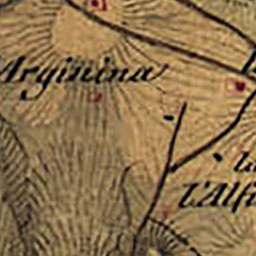 Arginina
L'Alfi